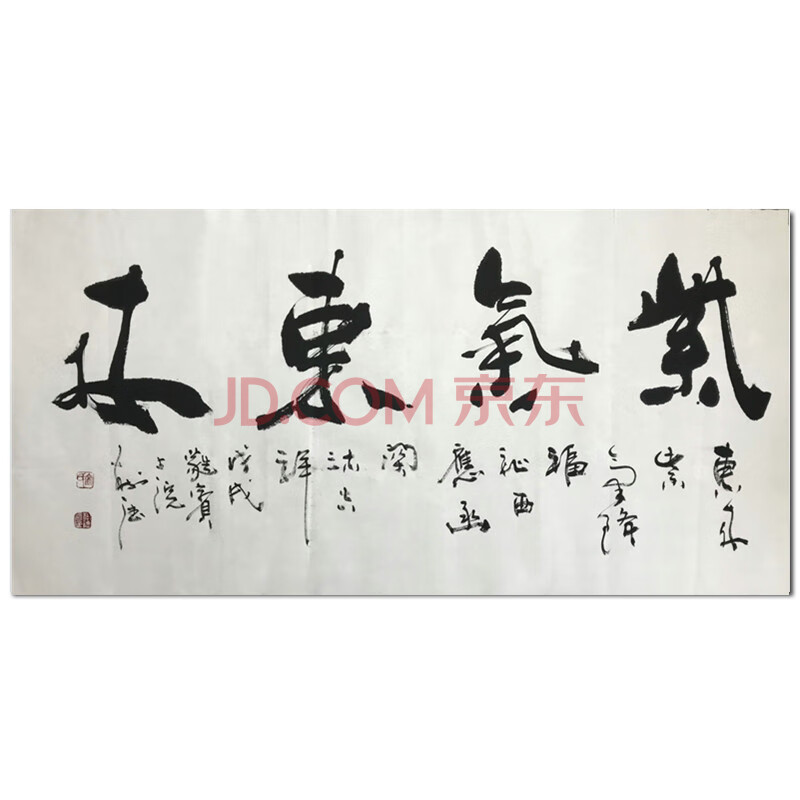 紫氣東來
東來
紫
氣 降
福
祉西
應函
關
沐吉
祥
戊戌
蕤賓
上浣
JD.COM 京东